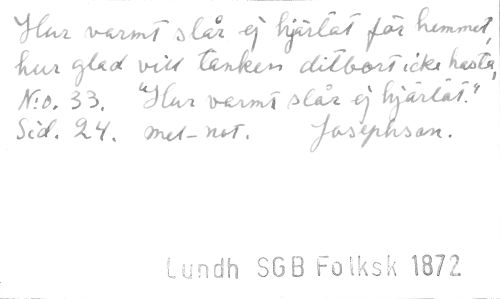 Hur varmt slår ej hjärtat för hemmet,
hur glad vill tanken ditbort icke hasta,
N:o. 33. "Hur varmt slår ej hjärtat."
Sid. 24. mel-not. Josephson.
Lundh SGB Folksk 1872